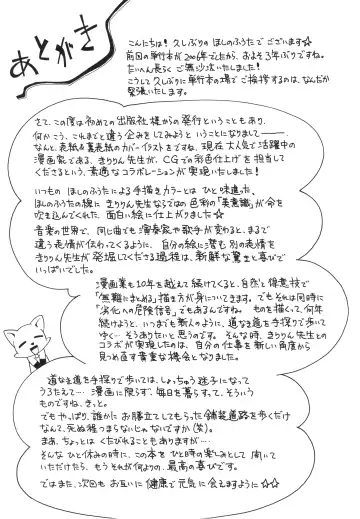 あとがき
こんにちは！久しぶりのほしのふうたでございます☆
前回の単行本が2006年でしたから、およそ3年ぶりですね。
たいへん長らくご無沙汰いたしました！
こうして久しぶりに単行本の場でご挨拶するのは、なんだか
緊張いたします。
さて、この度は初めての出版社様からの発行ということもあり、
何かこう、これまでと違う企みをしてみようということになりまして――。
なんと、表紙&裏表紙のカバーイラストをですね、現在大人気で活躍中の
漫画家である、きりりん先生が、CGでの彩色仕上げを担当して
くださるという、素適なコラボレーションが実現いたしました！
いつものほしのふうたによる手描きカラーとはひと味違った、
ほしのふうたの線にきりりん先生ならではの色彩の「美意識」が命を
吹き込んでくれた、面白い絵に仕上がりました☆
音楽の世界で、同じ曲でも演奏家や歌手が変わると、まるで
違う表情が伝わってくるように、自分の絵に潜む別の表情を
きりりん先生が発掘してくださる過程は、新鮮な驚きと喜びで
いっぱいでした。
漫画業も10年を越えて続けてくると、自然と得意技で
「無難にまとめる」描き方が身についてきます。でもそれは同時に
「劣化への危険信号」でもあるんですね。ものを描くって、何年
続けようと、いつまでも新人のように、道なき道を手探りで歩いて
ゆく…そうありたいと思うのです。そんな時、きりりん先生との
コラボが実現したのは、自分の仕事を新しい角度から
見つめ直す貴重な機会となりました。
道なき道を手探りで歩いては、しょっちゅう迷子になって
うろたえて…… 漫画に限らず、毎日を暮らすって、そういう
ものですね、きっと。
でもやっぱり、誰かにお膳立てしてもらった舗装道路を歩くだけ
なんて、死ぬ程つまらないじゃないですか(笑)。
まあ、ちょっとはくたびれることもありますが…
そんなひと休みの時に、この本をひと時の楽しみとして開いて
いただけたら、もうそれが何よりの、最高の喜びです。
ではまた、次回もお互いに健康で元気に会えますように☆☆